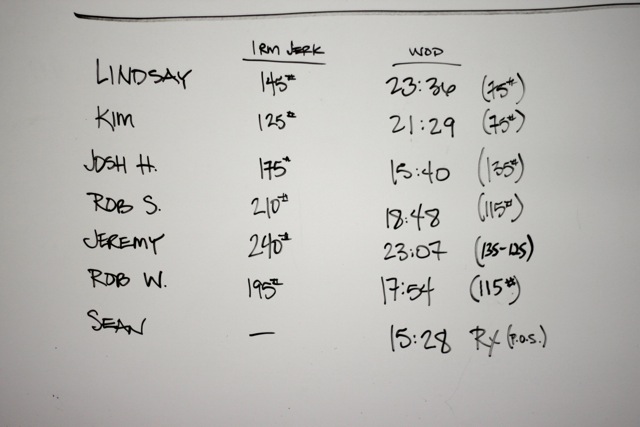 1RM JERK WOD
LINDSAY 145# 23:36 (75#)
KIM 125# 21:29 (75#)
JOSH H. 175# 15:40 (135#)
ROB S. 210# 18:48 (115#)
JEREMY 240# 23:07 (135-125)
ROB W. 195# 17:54 (115#)
SEAN — 15:28 RX (P.O.S.)